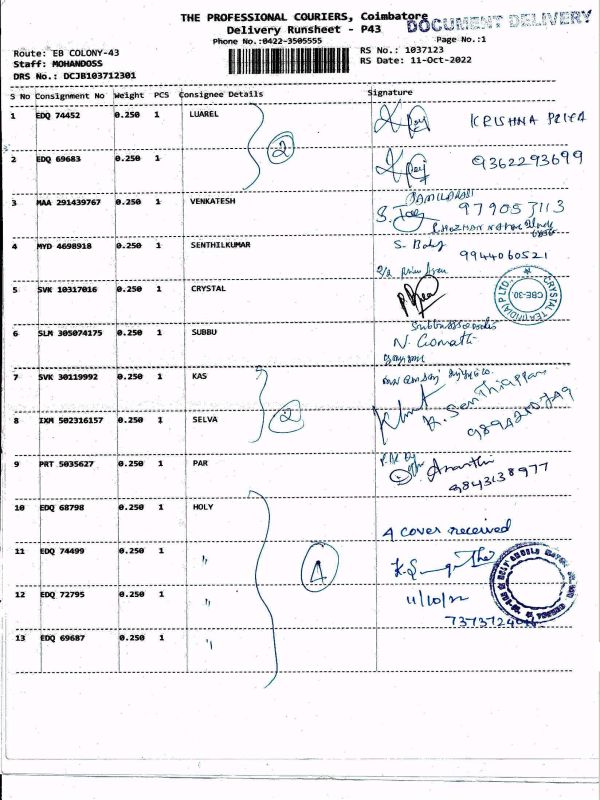 THE PROFESSIONAL COURIERS, Coimbatore
DOCUMENT DELIVERY
Delivery Runsheet - P43
Phone No.:0422-3505555
Page No.:1
Route: EB COLONY-43
RS No.: 1037123
Staff: MOHANDOSS
RS Date: 11-Oct-2022
DRS No.: DCJB103712301
S No Consignment No Weight PCS Consignee Details Signature
1 EDQ 74452 0.250 1 LUAREL KRISHNA PRIYA
2
2 EDQ 69683 0.250 1 9362293699
3 MAA 291439767 0.250 1 VENKATESH
979053113
4 MYD 4698918 0.250 1 SENTHILKUMAR S.
9944060521
5 SVK 10317016 0.250 1 CRYSTAL
CRYSTAL TEA(INDIA) P LTD. CBE-30.
6 SLM 305074175 0.250 1 SUBBU
N. Gomathi
7 SVK 30119992 0.250 1 KAS
K. Senthiappan
2
8 IXM 502316157 0.250 1 SELVA
9894210749
9 PRT 5035627 0.250 1 PAR
Ananthi
9843138977
10 EDQ 68798 0.250 1 HOLY
4 cover received
11 EDQ 74499 0.250 1 "
4
12 EDQ 72795 0.250 1 "
11/10/22
13 EDQ 69687 0.250 1 "